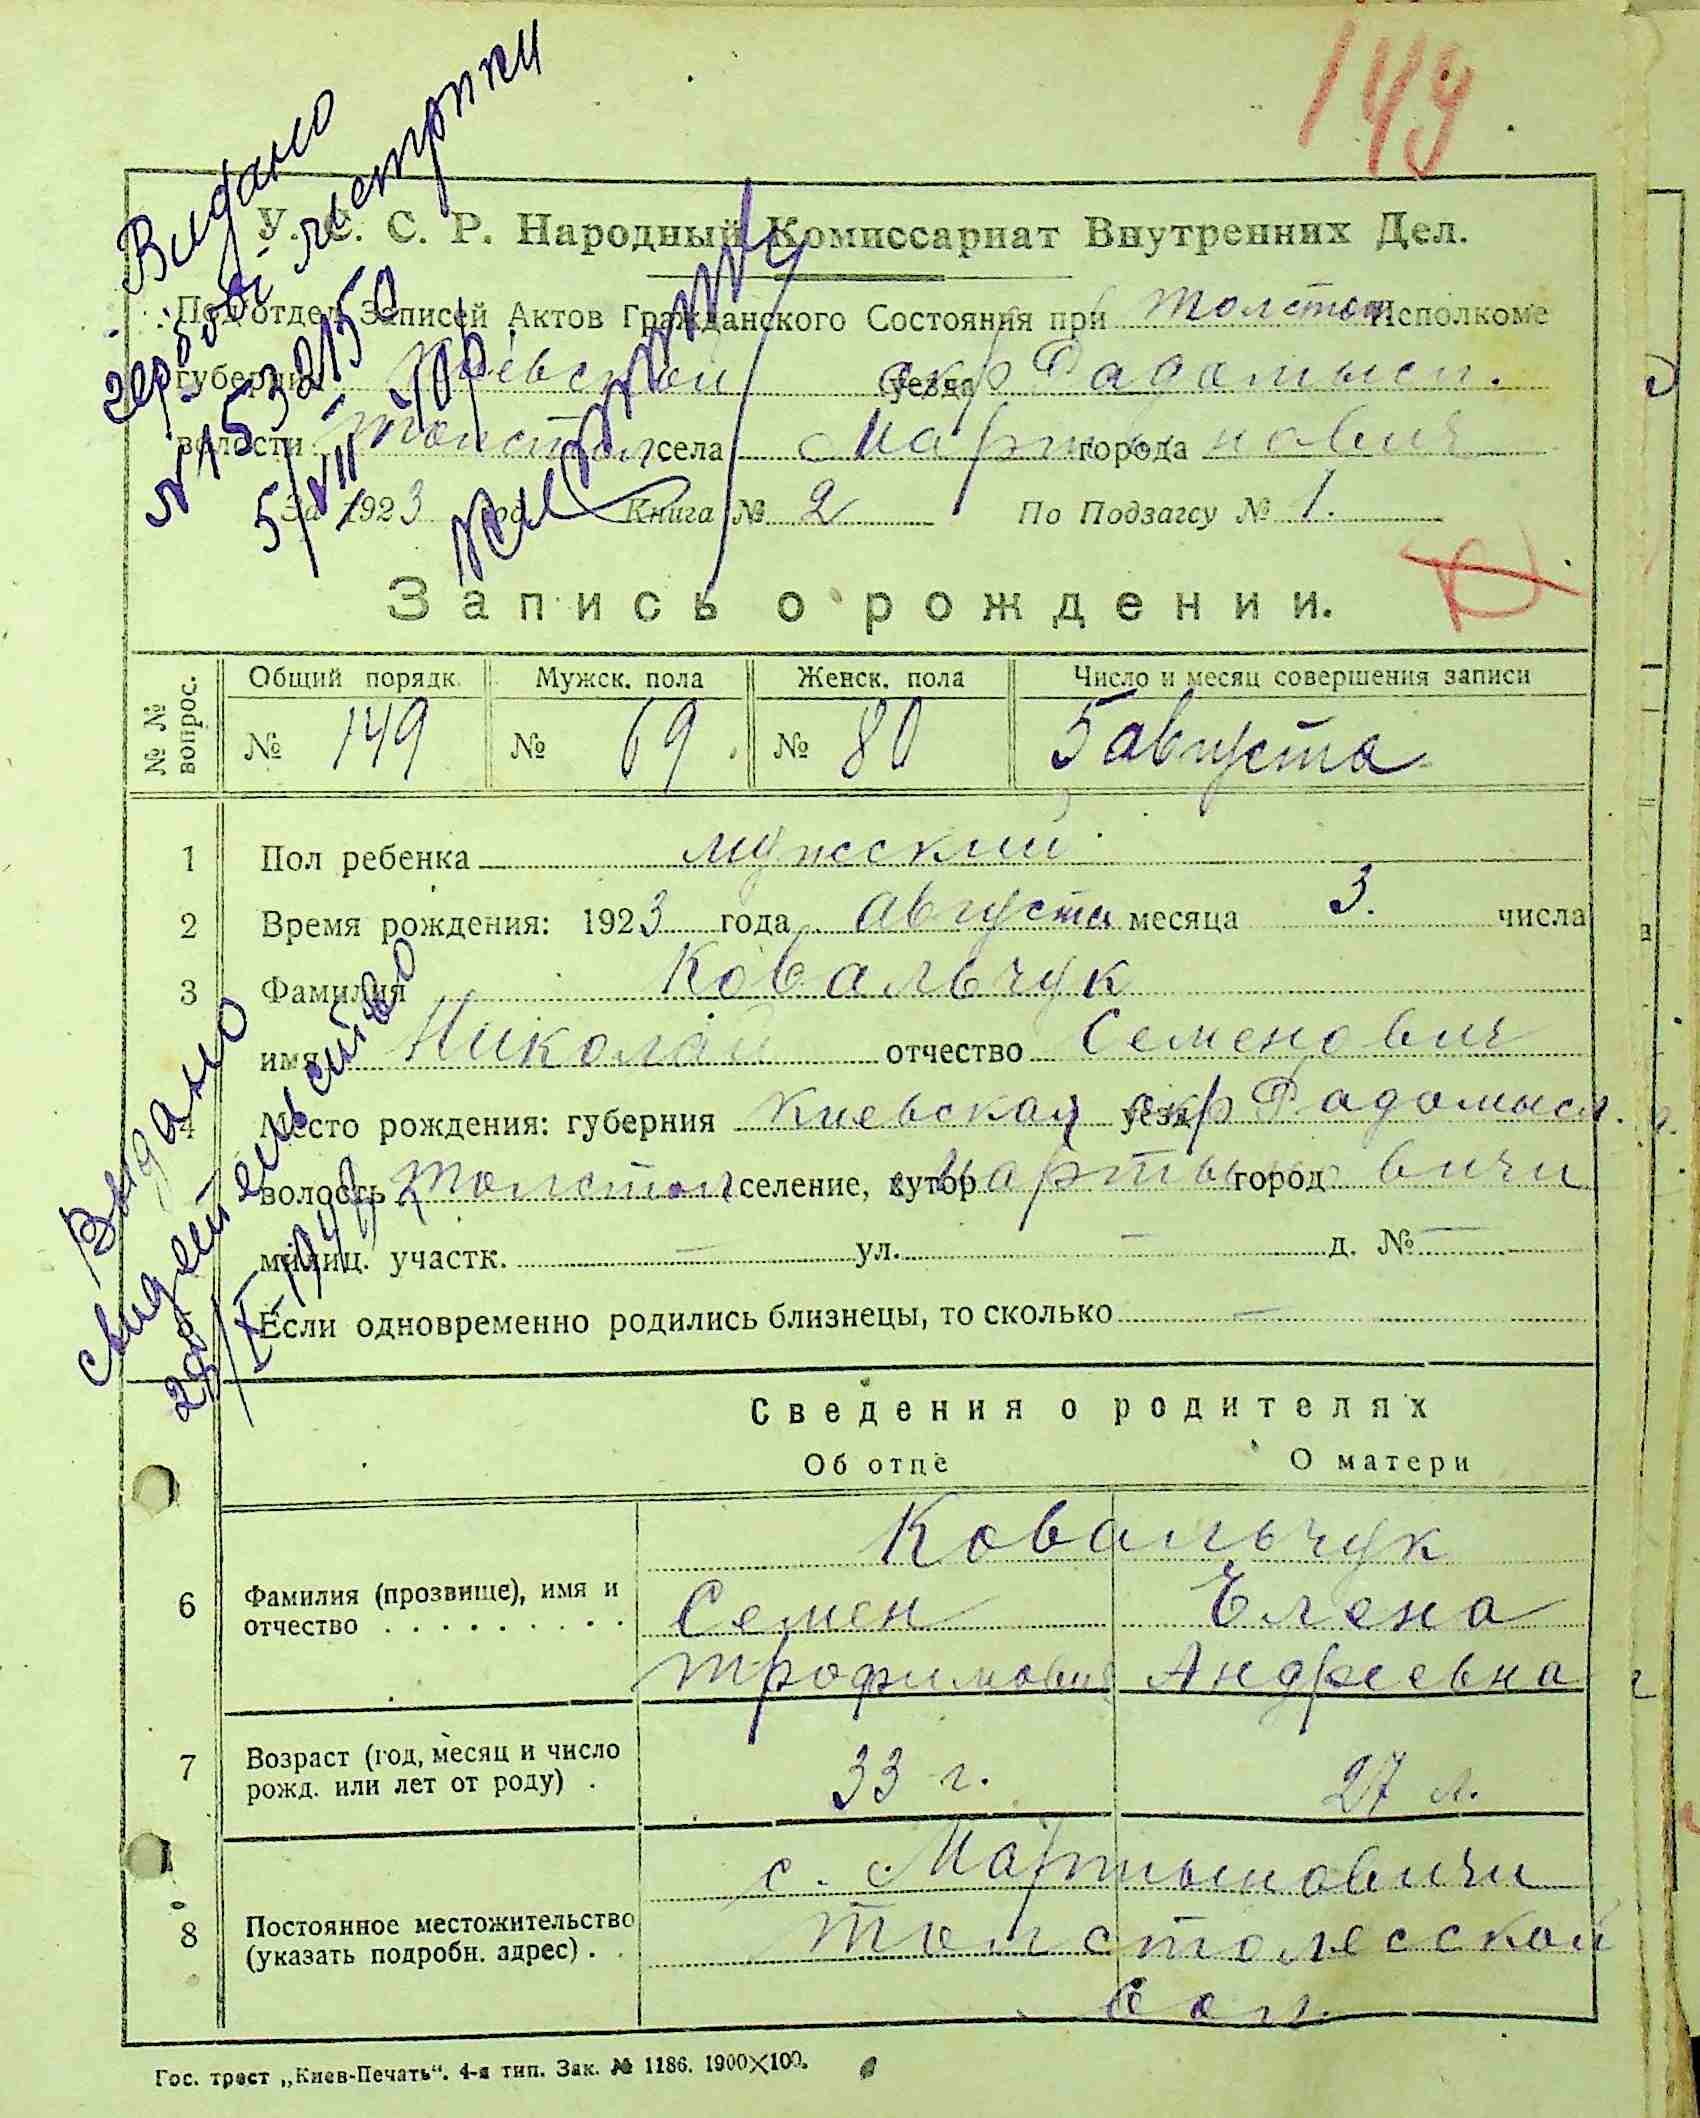 149
Видано
метрики
У. С. С. Р. Народный Комиссариат Внутренних Дел.
Подотдел Записей Актов Гражданского Состояния при Толстол Исполкоме
губернии Киевской окр уезда Радомысл.
волости Толстол села Мартыновичи города
За 1923 год Книга № 2 По Подзагсу № 1.
Запись о рождении.
№ № вопрос.
Общий порядк. Мужск. пола Женск. пола Число и месяц совершения записи
№ 149 № 69 № 80 5 августа
1 Пол ребенка мужский
2 Время рождения: 1923 года августа месяца 3. числа
3 Фамилия Ковальчук
имя Николай отчество Семенович
4 Место рождения: губерния Киевская уезд окр Радомысл.
волость Толстол селение, хутор Мартыновичи город
милиц. участк. — ул. — д. № —
Если одновременно родились близнецы, то сколько —
Выдано
свидетельство
Сведения о родителях
Об отце О матери
Ковальчук
6 Фамилия (прозвище), имя и отчество . . . . . . . . . Семен Елена
Трофимович Андреевна
7 Возраст (год, месяц и число рожд. или лет от роду) . 33 г. 27 л.
с. Мартыновичи
8 Постоянное местожительство (указать подробн. адрес) . . Толстолесской
вол.
Гос. трест „Киев-Печать“. 4-я тип. Зак. № 1186. 1900×100.